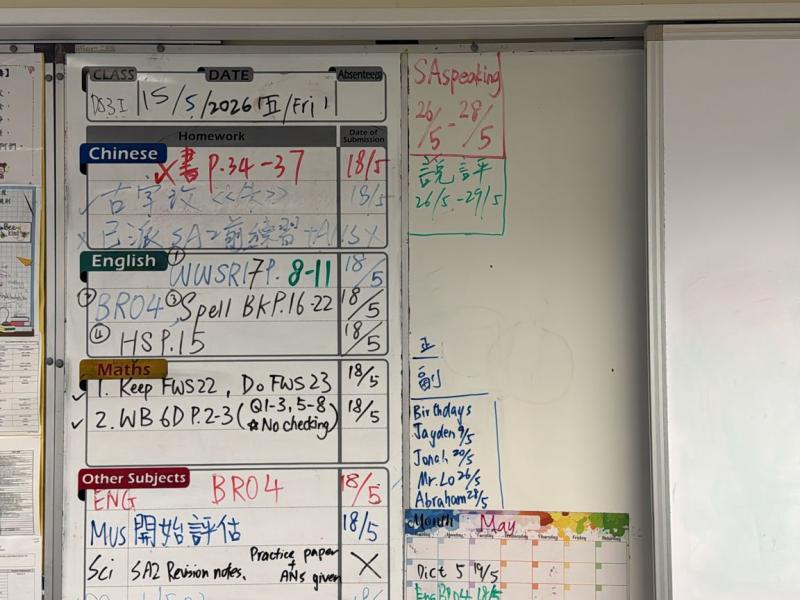 CLASS DATE Absentees
15/5/2026 (五/Fri)
Homework Date of Submission
Chinese
書 P.34-37 18/5
18/5
已派 SA2 前練習 +ANS X
English
① WWSR17 P. 8-11 18/5
② BR04 ③ Spell Bk P.16-22 18/5
④ HS P.15 18/5
Maths
✓ 1. Keep FWS22, Do FWS23 18/5
✓ 2. WB 6D P.2-3 (Q1-3, 5-8 ☆ No checking) 18/5
Other Subjects
ENG BR04 18/5
Mus 開始評估 18/5
Sci SA2 Revision notes. Practice paper + ANs given X
SA speaking
26/5 - 28/5
說評
26/5 - 29/5
正
副
Birthdays
Jayden 9/5
Jonah 20/5
Mr. Lo 26/5
Abraham 28/5
Month May
Dict 5 19/5
Eng BR04 18/5